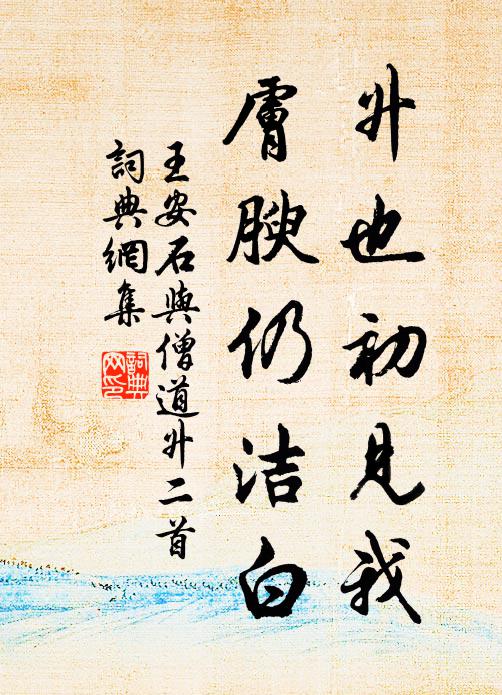 升也初見我
膚腴仍洁白
王安石與僧道升二首
詞典網集
詞典网印